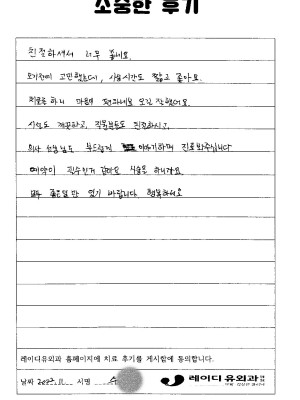 소중한 후기
친절하셔서 너무 좋네요.
오기전에 고민했는데, 시술시간도 짧고 좋아요.
치료을 하니 마음이 편하네요 오길 잘했어요.
시설도 깨끗하고, 직원분들도 친절하시고,
의사 선생님도 부드럽게 이야기하며 진료봐주십니다
예약이 필수인거 같아요 시술을 하니까요
모두 좋은일만 있기 바랍니다. 행복하세요
레이디유외과 홈페이지에 치료 후기를 게시함에 동의합니다.
날짜 2023.11 서명
레이디 유외과